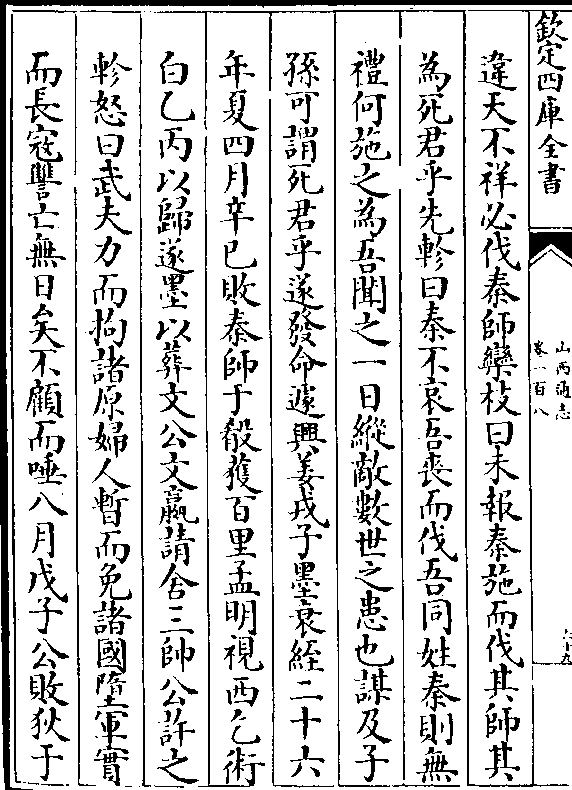 欽定四庫全書
山西通志
卷一百八
六十九
違天不祥必伐秦師欒枝曰未報秦施而伐其師其
為死君乎先軫曰秦不哀吾喪而伐吾同姓秦則無
禮何施之為吾聞之一日縱敵數世之患也謀及子
孫可謂死君乎遂發命遽興姜戎子墨衰絰二十六
年夏四月辛巳敗秦師于殽獲百里孟明視西乞術
白乙丙以歸遂墨以葬文公文嬴請舍三帥公許之
軫怒曰武夫力而拘諸原婦人暫而免諸國墮軍實
而長寇讐亡無日矣不顧而唾八月戊子公敗狄于